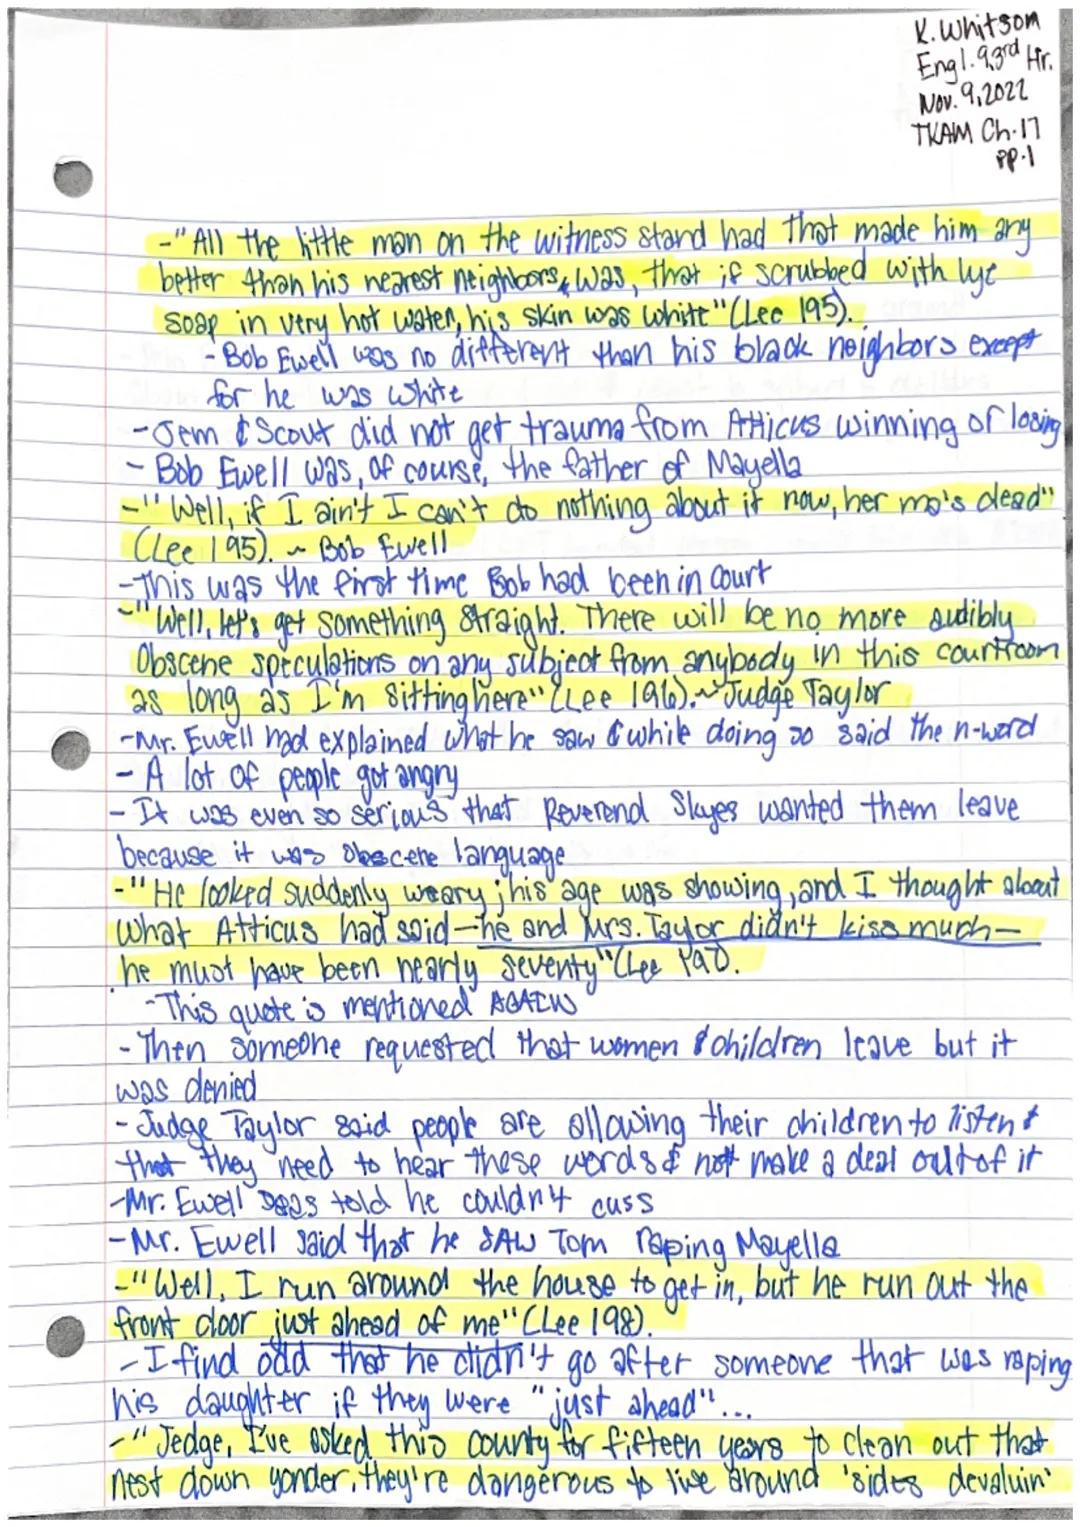 K. Whitsom
Engl. 9, 3rd Hr.
Nov. 9, 2022
TKAM Ch. 17
pp. 1
-"All the little man on the witness stand had that made him any
better than his nearest neighbors, was, that if scrubbed with lye
soap in very hot water, his skin was white" (Lee 195).
- Bob Ewell was no different than his black neighbors except
for he was white
- Jem & Scout did not get trauma from Atticus winning or losing
- Bob Ewell was, of course, the father of Mayella
-"Well, if I ain't I can't do nothing about it now, her ma's dead"
(Lee 195). ~ Bob Ewell
-This was the first time Bob had been in court
-"Well, let's get something straight. There will be no more audibly
obscene speculations on any subject from anybody in this courtroom
as long as I'm sitting here" (Lee 196). ~ Judge Taylor
-Mr. Ewell had explained what he saw & while doing so said the n-word
- A lot of people got angry
- It was even so serious that Reverend Skyes wanted them leave
because it was obscene language
-"He looked suddenly weary; his age was showing, and I thought about
what Atticus had said—he and Mrs. Taylor didn't kiss much—
he must have been nearly seventy" (Lee
-This quote is mentioned AGAIN
- Then someone requested that women & children leave but it
was denied
- Judge Taylor said people are allowing their children to listen &
that they need to hear these words & not make a deal out of it
-Mr. Ewell was told he couldn't cuss
-Mr. Ewell said that he SAW Tom raping Mayella
-"Well, I run around the house to get in, but he run out the
front door just ahead of me" (Lee 198).
- I find odd that he didn't go after someone that was raping
his daughter if they were "just ahead"...
-"Jedge, I've asked this county for fifteen years to clean out that
nest down yonder, they're dangerous to live around 'sides devaluin'